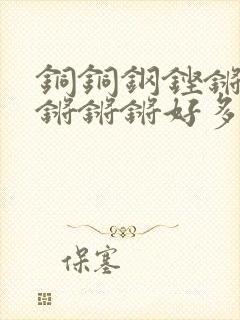 銅銅鋼鏗鏘
鏘鏘鏘好多
保塞